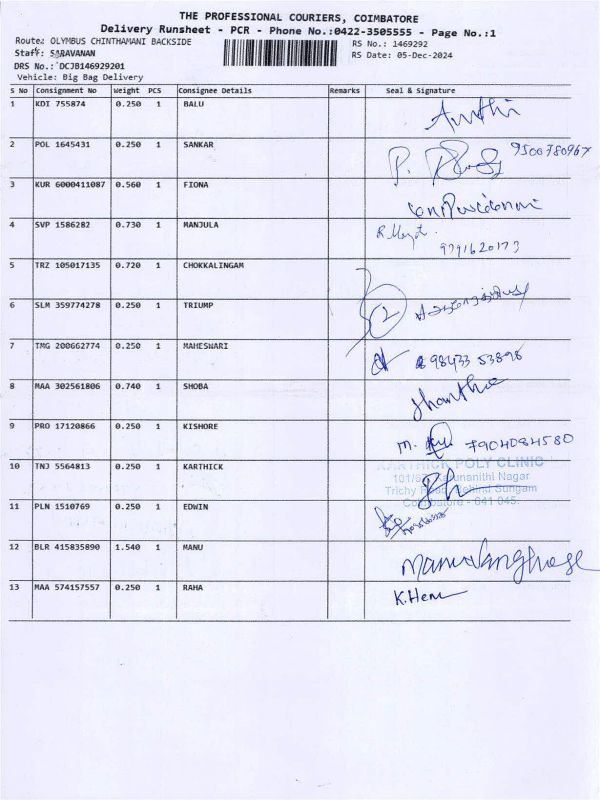 THE PROFESSIONAL COURIERS, COIMBATORE
Delivery Runsheet - PCR - Phone No.:0422-3505555 - Page No.:1
Route: OLYMBUS CHINTHAMANI BACKSIDE
RS No.: 1469292
Staff: SARAVANAN
RS Date: 05-Dec-2024
DRS No.: DCJB146929201
Vehicle: Big Bag Delivery
S No Consignment No Weight PCS Consignee Details Remarks Seal & Signature
1 KDI 755874 0.250 1 BALU
2 POL 1645431 0.250 1 SANKAR 9500780967
3 KUR 6000411087 0.560 1 FIONA
4 SVP 1586282 0.730 1 MANJULA
9791620173
5 TRZ 105017135 0.720 1 CHOKKALINGAM
6 SLM 359774278 0.250 1 TRIUMP
7 TMG 200662774 0.250 1 MAHESWARI 98433 53898
8 MAA 302561806 0.740 1 SHOBA Shantha
9 PRO 17120866 0.250 1 KISHORE 7904084580
10 TNJ 5564813 0.250 1 KARTHICK
KARTHICK POLY CLINIC
Nagar
Trichy Road, Behind Sungam
Coimbatore - 641 045.
11 PLN 1510769 0.250 1 EDWIN
12 BLR 415835890 1.540 1 MANU
13 MAA 574157557 0.250 1 RAHA K.Hem